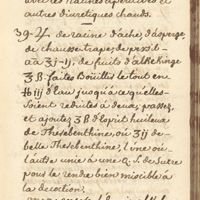 avec les racines aperitives et
autres diuretiques chauds.
39 - ♃ de racine d'ache, d'asperge,
de chaussetrape, de persil -
aa ʒij - ij, de fruits d'alkekenge
℥ß. faites Boüillir le tout en
℔iij d'eau jusqu'a ce qu'elles
soient reduites à deux, passez,
et ajoutez ʒß d'esprit huileux
de Therebenthine, ou ʒij de
belle Therebenthine, l'une ou
l'autre unie à une Q. S. de sucre
pour la rendre bien miscible à
la decoction.